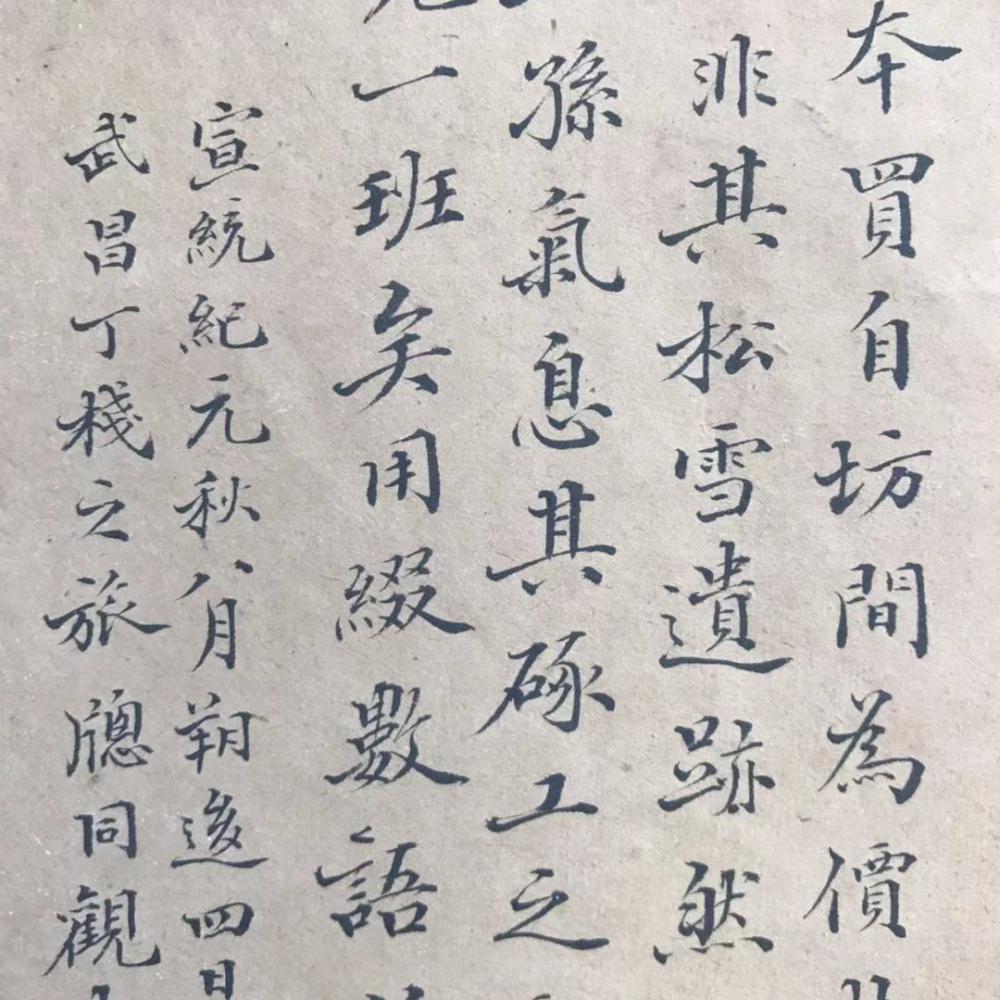 本買自坊間為價
非其松雪遺跡然
孫氣息其硺工之
一班矣用綴數語
宣統紀元秋八月朔逡四日
武昌丁棧之旅牕同觀